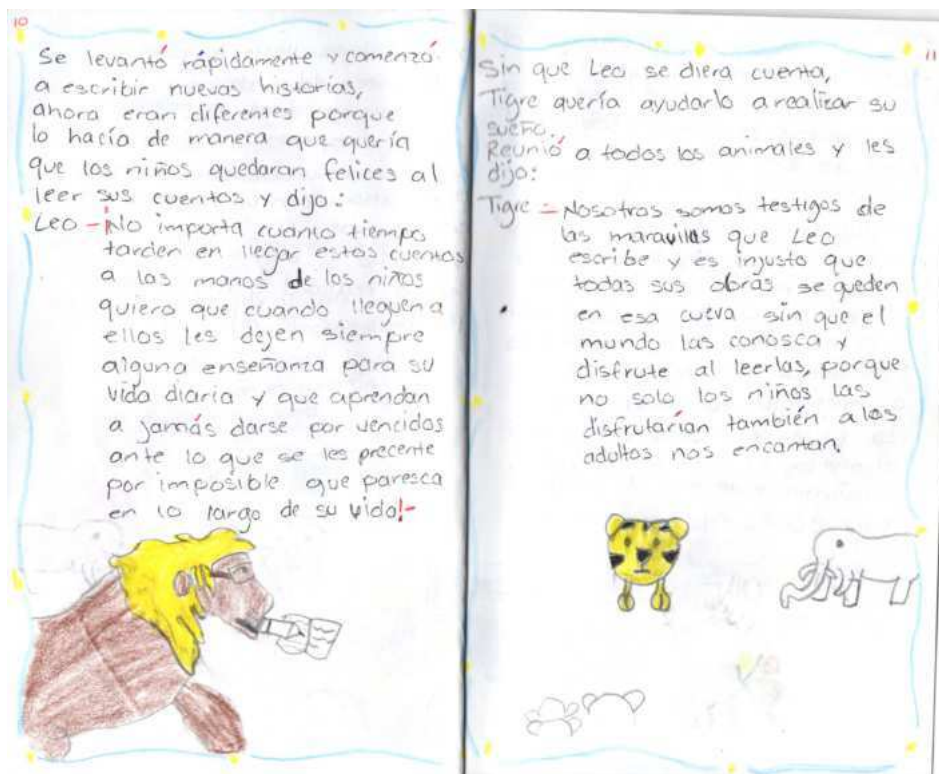 10
Se levantó rápidamente y comenzó
a escribir nuevas historias,
ahora eran diferentes porque
lo hacía de manera que quería
que los niños quedaran felices al
leer sus cuentos y dijo:
Leo -¡No importa cuanto tiempo
tarden en llegar estos cuentos
a las manos de los niños
quiero que cuando lleguen a
ellos les dejen siempre
alguna enseñanza para su
vida diaria y que aprendan
a jamás darse por vencidos
ante lo que se les precente
por imposible que paresca
en lo largo de su vida!-
11
Sin que Leo se diera cuenta,
Tigre quería ayudarlo a realizar su
sueño.
Reunió a todos los animales y les
dijo:
Tigre - Nosotros somos testigos de
las maravillas que Leo
escribe y es injusto que
todas sus obras se queden
en esa cueva sin que el
mundo las conosca y
disfrute al leerlas, porque
no solo los niños las
disfrutarían también a los
adultos nos encantan.